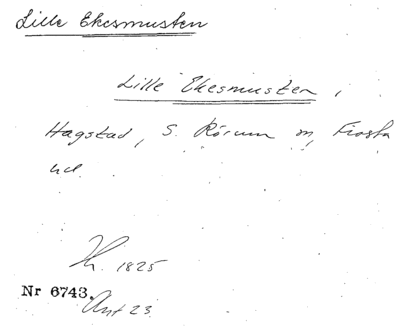 Lille Ekesmusten
Lille Ekesmusten,
Hagstad, S. Rörum sn, Frosta
hd
H. 1825
Nr 6743.
Ant 23